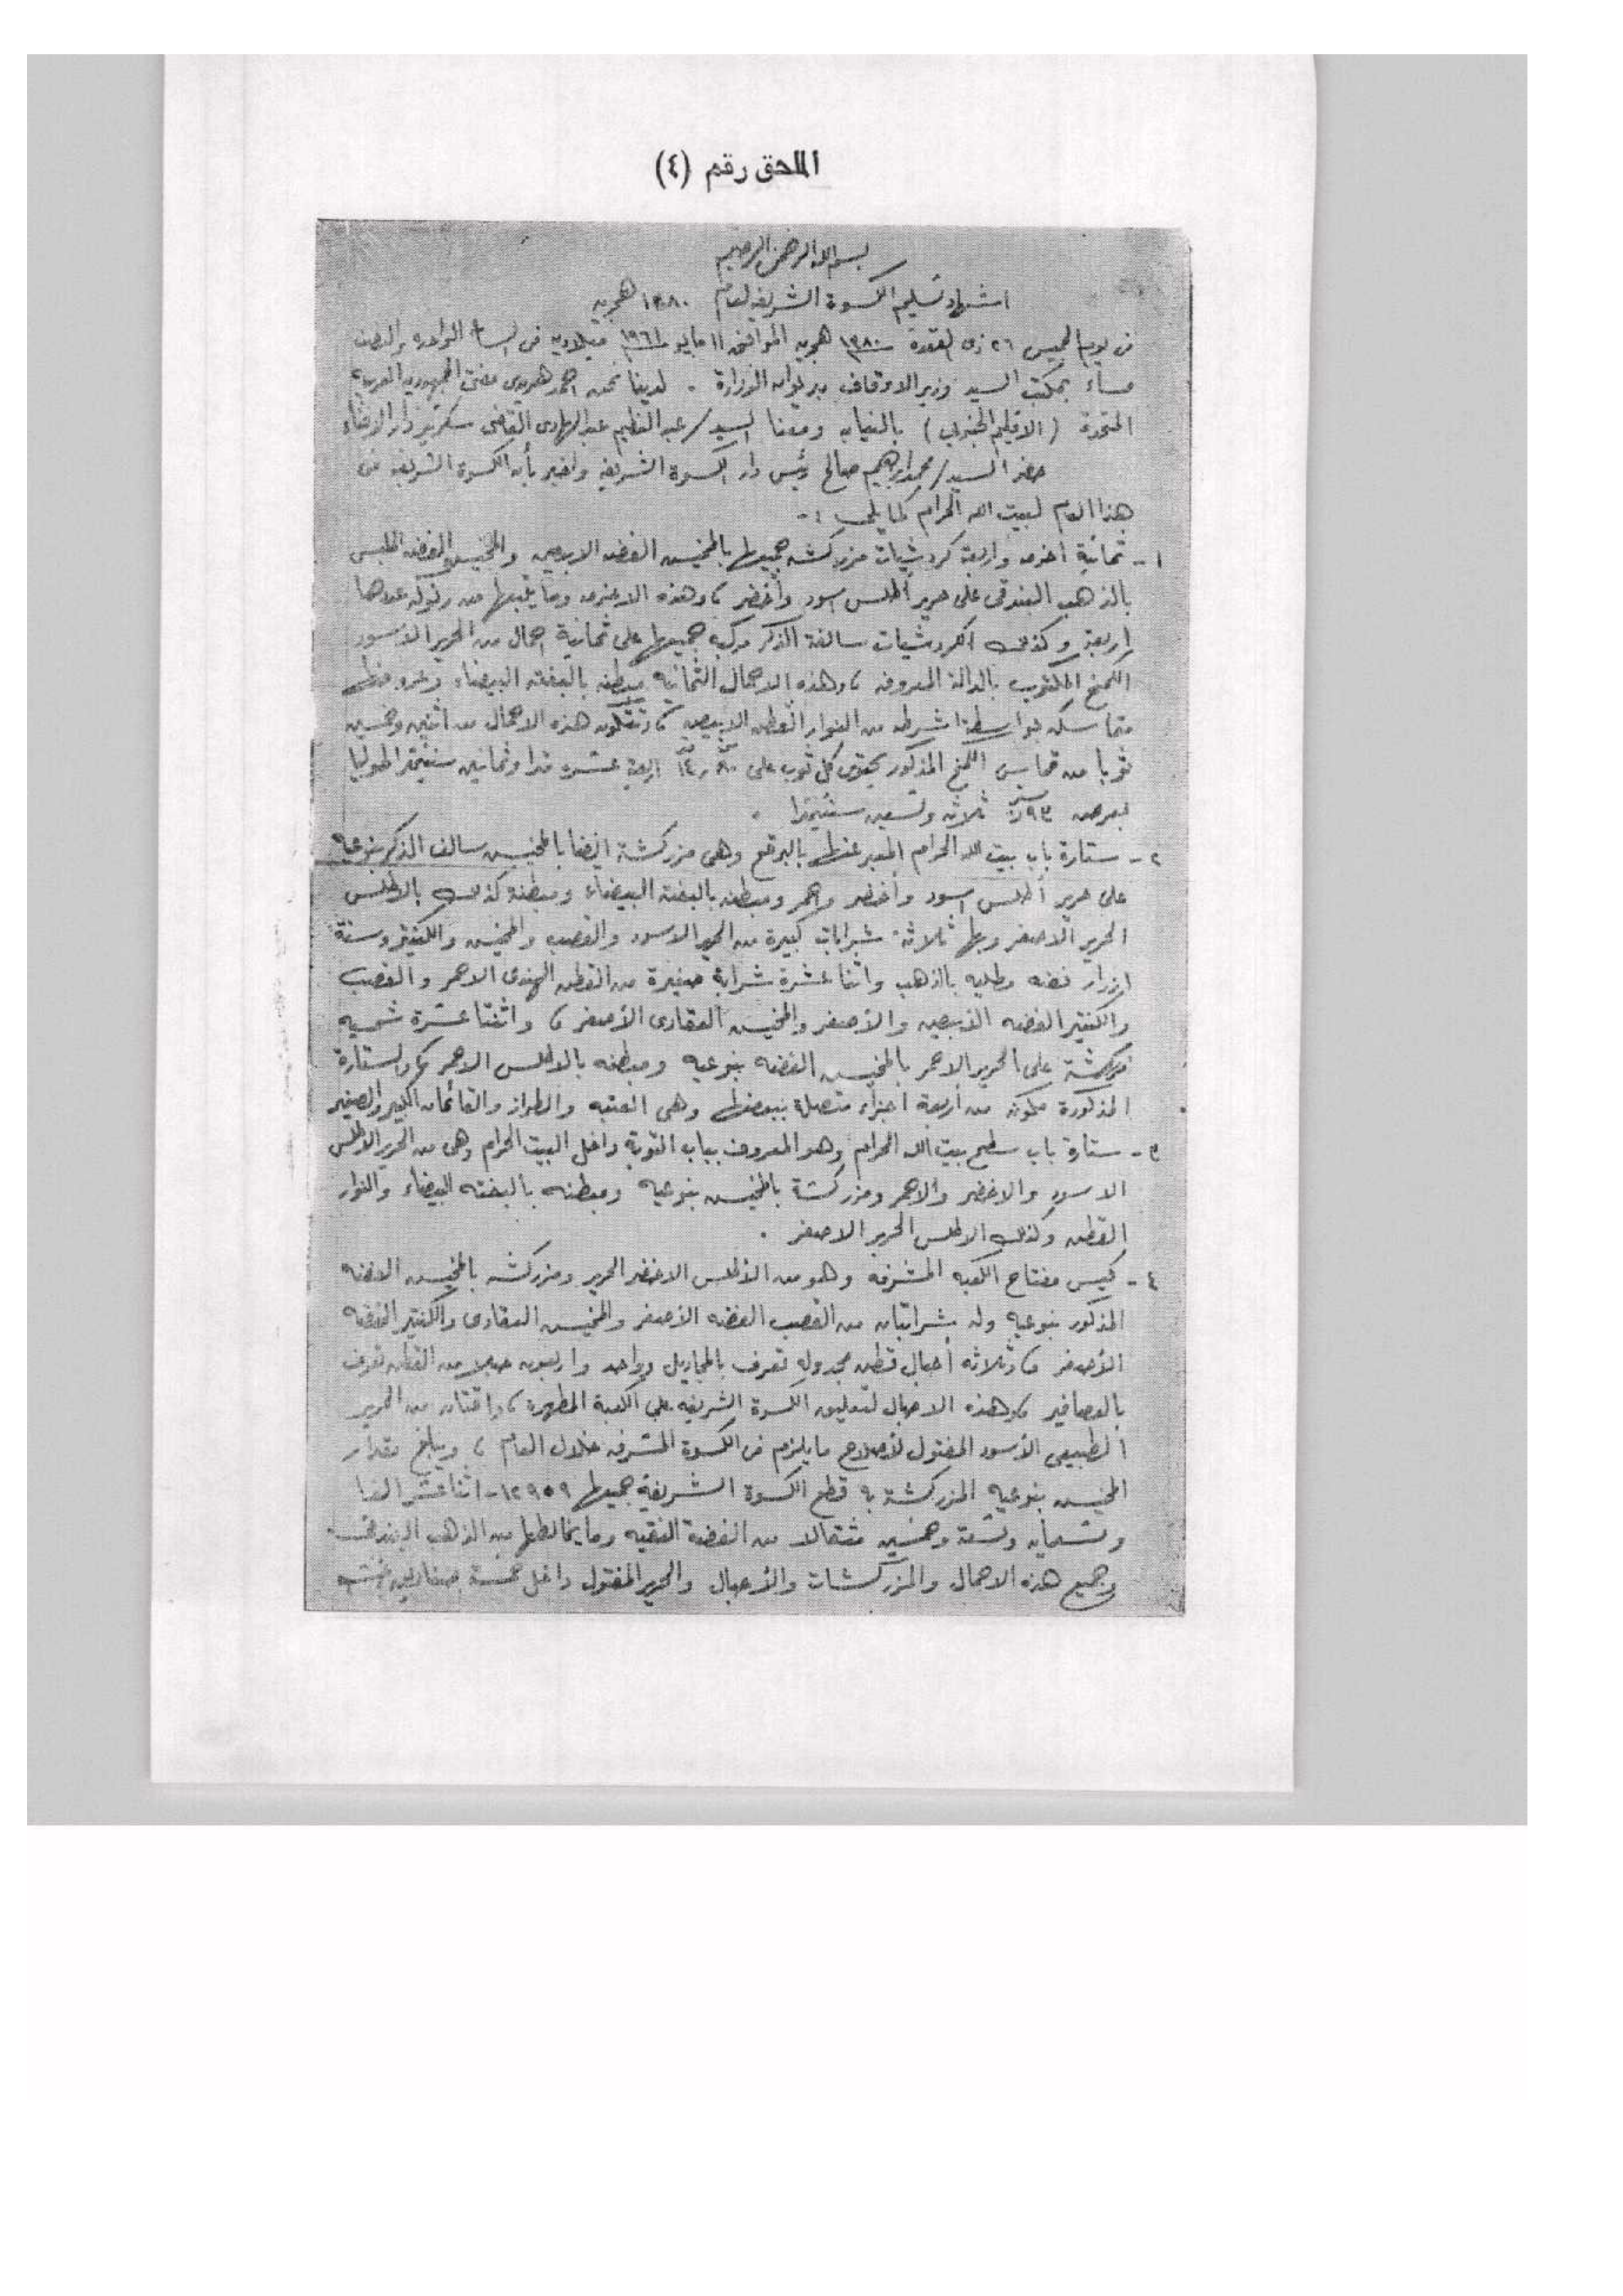 الملحق رقم (٤)
بسم الله الرحمن الرحيم
اشهاد تسليم الكسوة الشريفة لعام ١٣٨٠ هجرية
فى يوم الخميس ٢٦ ذى القعدة ١٣٨٠ هجرية الموافق ١١ مايو ١٩٦١ ميلادية فى الساعة الواحدة والنصف
مساء بمكتب السيد وزير الاوقاف بديوان الوزارة . لدينا نحن احمد هريدى مفتى الجمهورية العربية
المتحدة (الاقليم الجنوبى) بالنيابه ومعنا السيد/ عبد العظيم عبد الهادى القاضى سكرتير دار الافتاء
حضر السيد/ محمد ابراهيم صالح رئيس دار الكسوة الشريفه واخبر بأن الكسوة الشريفه فى
هذا العام لبيت الله الحرام كما يلى :-
١- ثمانية احزمه واربعة كردشيات مزركشه جميعها بالمخيش الفضه الابيض والمخيش الفضه الملبس
بالذهب البندقى على حرير أطلس اسود وأخضر ، وهذه الاحزمه وما يتبعها من رنوك عددها
اربعة وكذلك الكردشيات سالفة الذكر مركبه جميعها على ثمانية احمال من الحرير الاسود
الكمخ المكتوب بالدالة المعروفه ، وهذه الاحمال الثمانيه مبطنه بالبفته البيضاء وعروضها
متماسكه بواسطة اشرطه من النوار القطن الابيض ، وتتكون هذه الاحمال من اثنين وخمسين
ثوبا من قماش الكمخ المذكور يحتوى كل ثوب على ١٤٫٨٠ اربعة عشره مترا وثمانين سنتيمترا طوليا
بعرض ٩٣ر٠ ثلاثه وتسعين سنتيمترا .
٢- ستارة باب بيت الله الحرام المعبر عنها بالبرقع وهى مزركشة ايضا بالمخيش سالف الذكر بنوعيه
على حرير أطلس اسود وأخضر واحمر ومبطنه بالبفتة البيضاء ومبطنه كذلك بالاطلس
الحرير الاصفر وبها ثلاثة شرابات كبيرة من الحرير الاسود والقصب والمخيش والكنتير وستة
ازرار فضه مطليه بالذهب واثنا عشرة شرابة صغيرة من القطن الهندى الاحمر والقصب
والكنتير الفضه الأبيض والأصفر والمخيش العقادى الأصفر ، واثنتا عشرة شمسيه
مزركشة على الحرير الاحمر بالمخيش الفضه بنوعيه ومبطنه بالاطلس الاحمر ، والستارة
المذكورة مكونه من أربعة اجزاء متصلة ببعضها وهى العتبه والطراز والقائمان الكبير والصغير
٣- ستارة باب سطح بيت الله الحرام وهو المعروف بباب التوبة داخل البيت الحرام وهى من الحرير الاطلس
الاسود والاخضر والاحمر ومزركشة بالمخيش بنوعيه ومبطنه بالبفته البيضاء والنوار
القطن وكذلك الاطلس الحرير الاصفر .
٤- كيس مفتاح الكعبه المشرفه وهو من الأطلس الاخضر الحرير ومزركشه بالمخيش الفضه
المذكور بنوعيه وله شرابتان من القصب الفضه الأصفر والمخيش العقادى والكنتير الفضه
الأصفر ، وثلاثه أحبال قطن مجدوله تعرف بالمجاديل وواحد واربعون حبلا من القطن تعرف
بالعصافير ، وهذه الاحبال لتعليق الكسوة الشريفه على الكعبة المطهرة ، واقتان من الحرير
الطبيعى الأسود المفتول لأصلاح ما يلزم فى الكسوة المشرفه خلال العام ، ويبلغ مقدار
المخيش بنوعيه المزركشة به قطع الكسوة الشريفة جميعها ١٢٩٥٩- اثنا عشر الفا
وتسعمايه وتسعة وخمسين مثقالا من الفضة النقيه وما يخالطها من الذهب البندقى .
وجميع هذه الاحمال والمزركشات والأحبال والحرير المفتول داخل خمسة صناديق